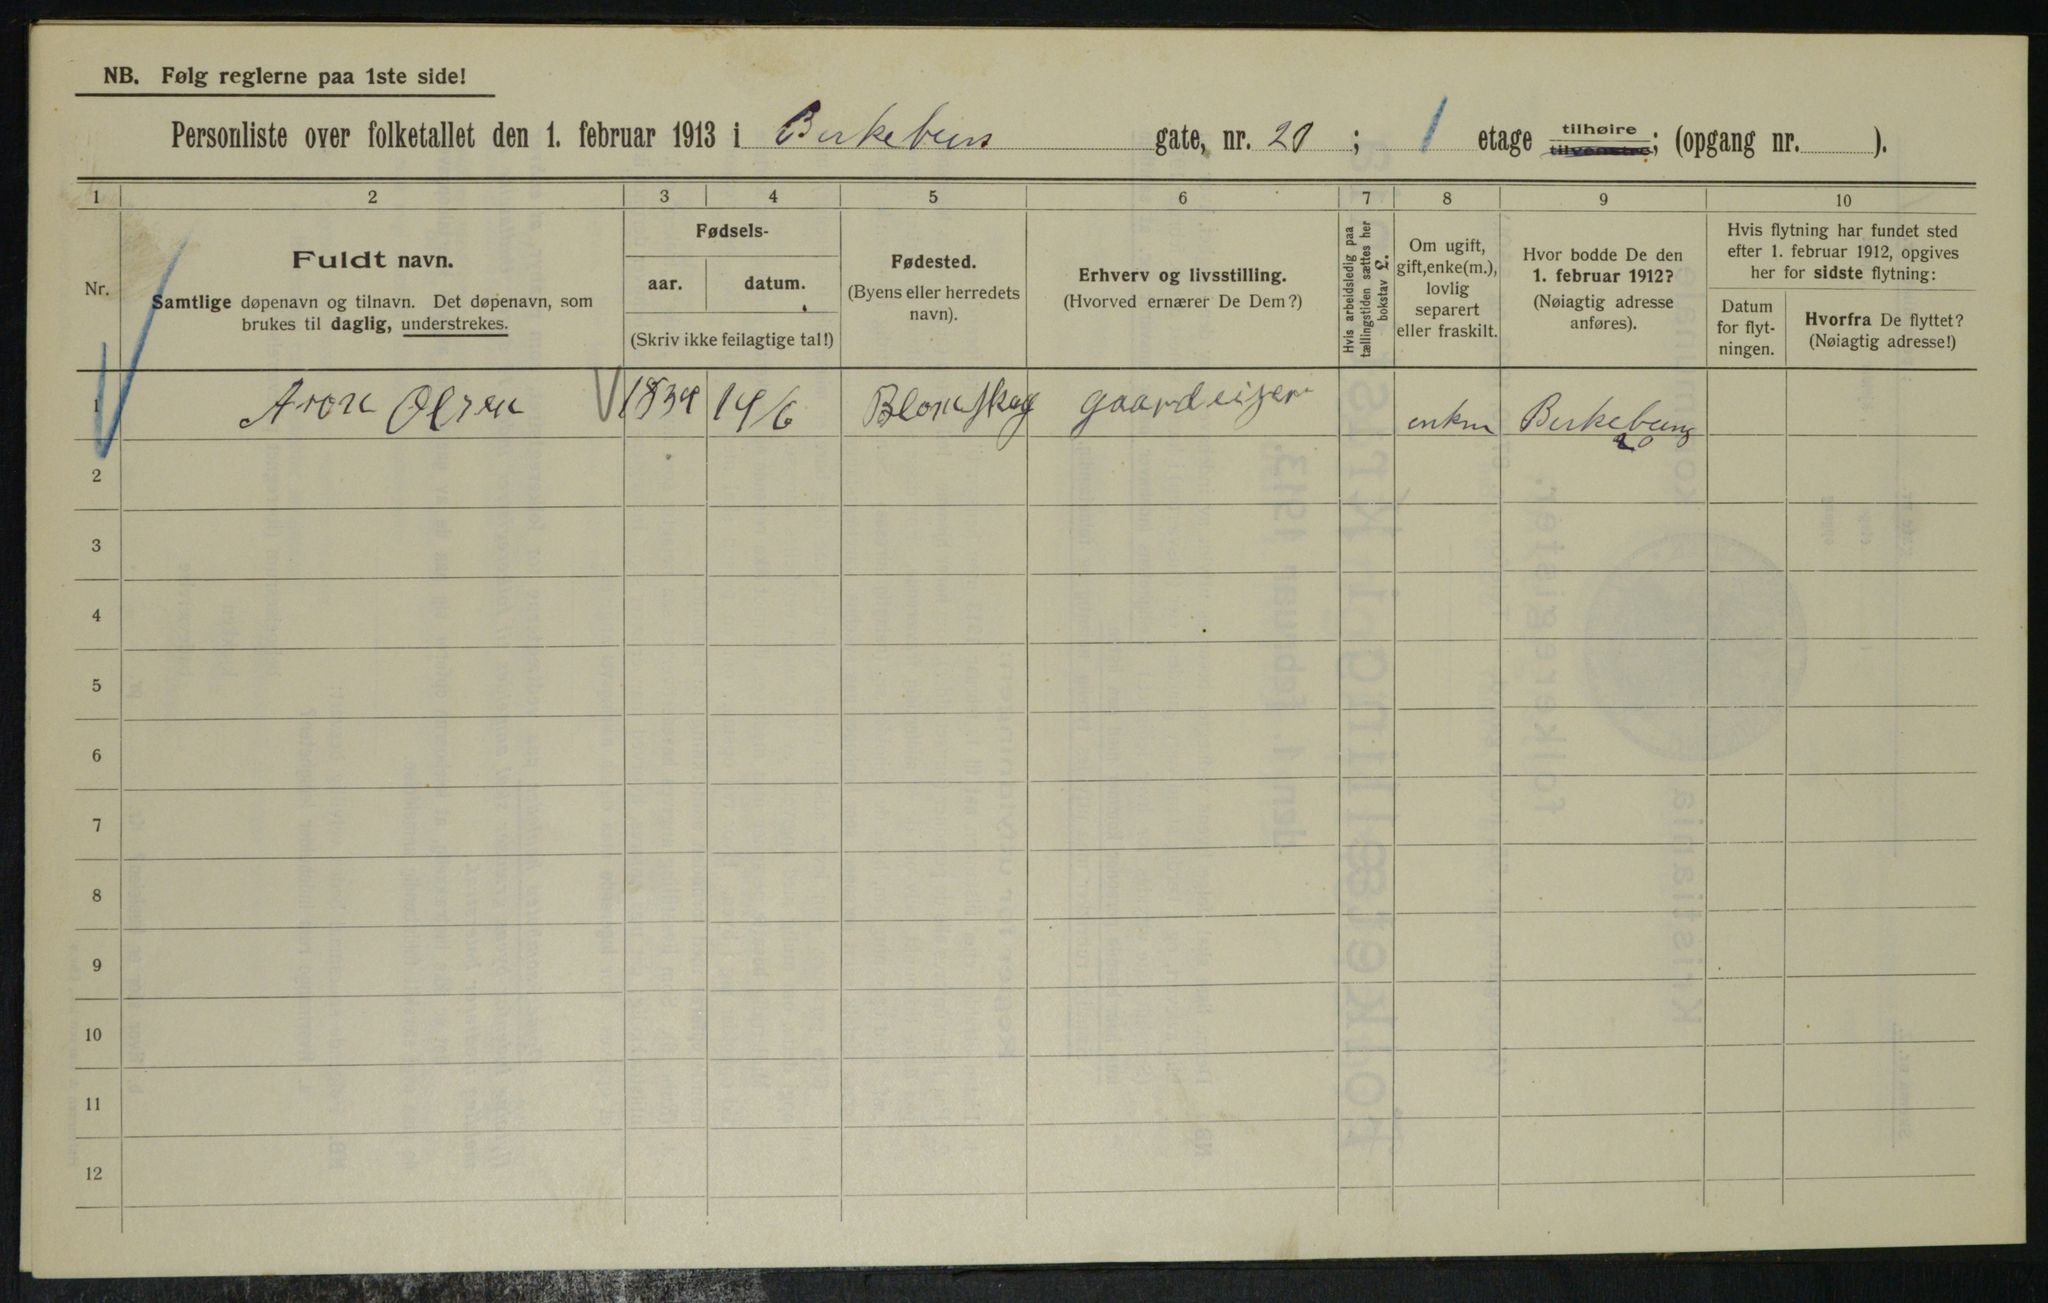 NB. Følg reglerne paa 1ste side!
Personliste over folketallet den 1. februar 1913 i Birkebens gate, nr. 20 ; 1 etage tilhøire tilvenstre; (opgang nr. ).
1 2 3 4 5 6 7 8 9 10
Nr.
Fuldt navn.
Samtlige døpenavn og tilnavn. Det døpenavn, som
brukes til daglig, understrekes.
Fødsels-
aar. datum.
(Skriv ikke feilagtige tal!)
Fødested.
(Byens eller herredets
navn).
Erhverv og livsstilling.
(Hvorved ernærer De Dem?)
Hvis arbeidsledig paa
tællingstiden sættes her
bokstav L.
Om ugift,
gift,enke(m.),
lovlig
separert
eller fraskilt.
Hvor bodde De den
1. februar 1912?
(Nøiagtig adresse
anføres).
Hvis flytning har fundet sted
efter 1. februar 1912, opgives
her for sidste flytning:
Datum
for flyt-
ningen.
Hvorfra De flyttet?
(Nøiagtig adresse!)
1 Aron Olsen 1839 14/6 Blomskog gaardeiger enkm Birkebens
20
2
3
4
5
6
7
8
9
10
11
12